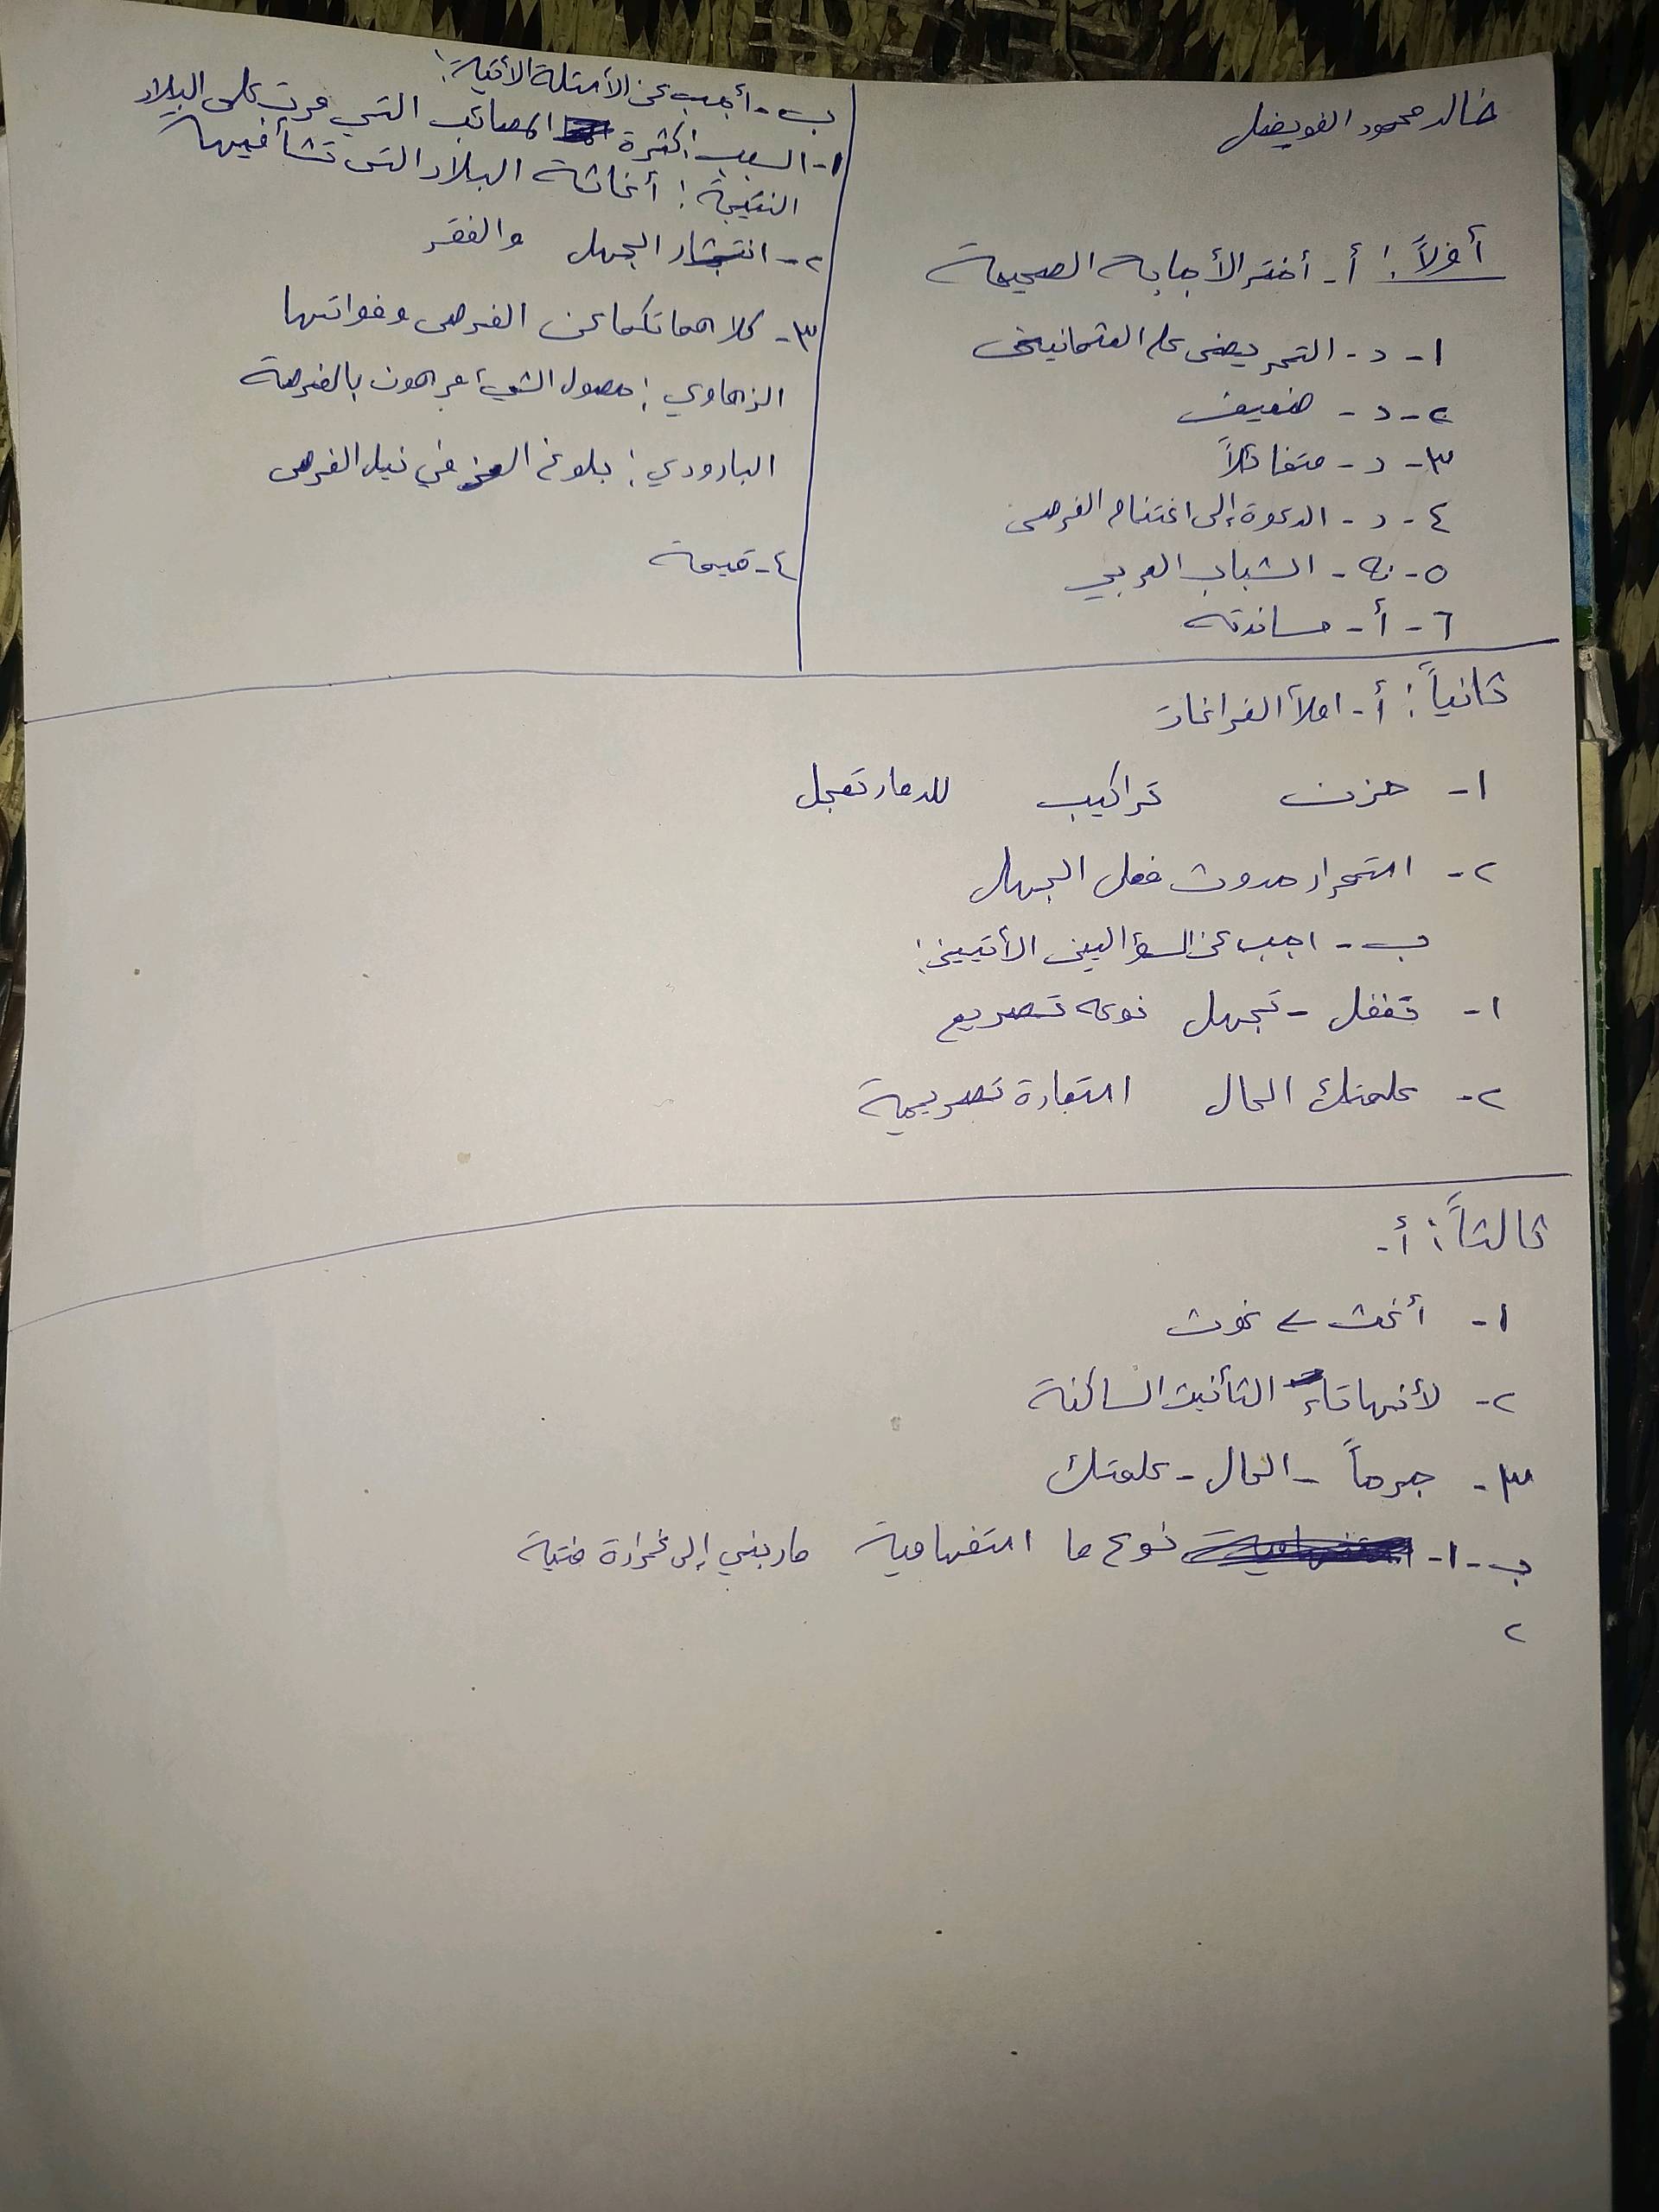 خالد محمود الفويضل
أولاً: أ- أختر الأجابه الصحيحة
١- د- التحريض على العثمانيين
٢- د- ضعيف
٣- د- متفائلاً
٤- د- الدعوة إلى اغتنام الفرص
٥- ج- الشباب العربي
٦- أ- مساندته
ب- أجب عن الأسئلة الأتية:
١- السبب: كثرة المصائب التي مرت على البلاد
النتيجة: أغاثة البلاد التي تنشأ فيها
٢- انتشار الجهل والفقر
٣- كلاهما تكلما عن الفرص وفواتها
الزهاوي: حصول الشيء مرهون بالفرصة
البارودي: بلوغ العز في نيل الفرص
٤- قيمة
ثانياً: أ- املأ الفراغات
١- حزن تراكيب للدمار تعجل
٢- استمرار حدوث فعل الجهل
ب- اجب عن السؤالين الأتيين:
١- تغفل - تجهل نوعه تصريع
٢- علمتك الحال استعارة تصريحية
ثالثاً: أ-
١- أغث ← غوث
٢- لأنها تاء التأنيث الساكنة
٣- جرحاً - الحال - علمتك
ب- ١- نوع ما استفهامية ماربني إلى غرارة فتية
٢